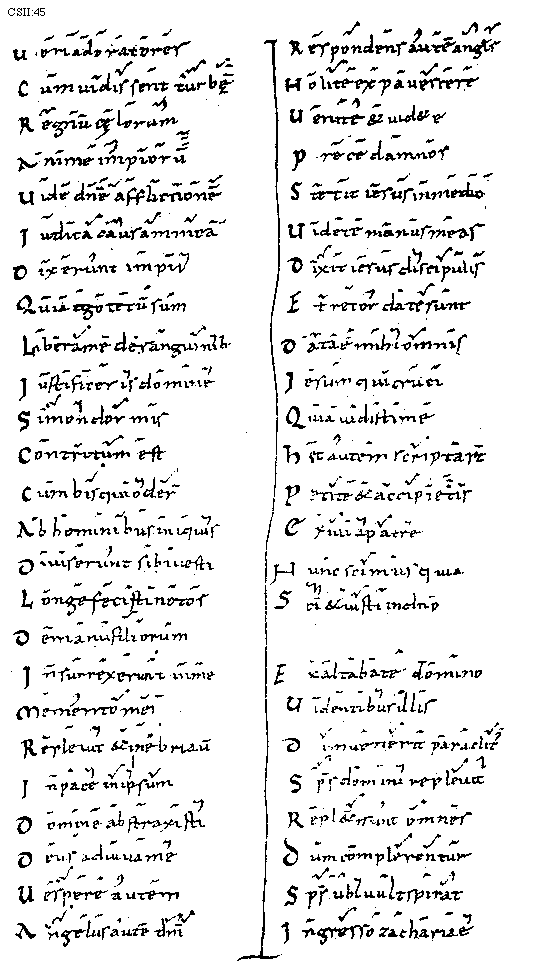 CSII:45
Ueri adoratores
Cum uidissent turbę̄
Regnū cęlorum
Anime impiorū
Uide dn̄e afflictionē
Iudica causam meā
Dixerunt impii
Quia ego tecū sum
Libera me de sanguinib
Iustificeris domine
Simon dormis
Contritum est
Cum his qui oder̄
Ab hominibus iniquis
Diuiserunt sibi uesti
Longe fecisti notos
De manu filiorum
Insurrexerunt in me
Memento mei
Repleuit & inebriaū
In pace in ipsum
Domine abstraxisti
Deus adiuua me
Uespere autem
Angelus aute dn̄i
Respondens aute angls
Nolite expauescere
Uenite & uidete
Precedam uos
Stetit iesus in medio
Uidete manus meas
Dixit iesus discipulis
Data ē mihi omnis
Iesum qui cruci
Quia uidisti me
Petite & accipietis
Exiui a patre
Hunc scimus quia
Sci & iusti in dn̄o
Exaltabate domino
Uidentibus illis
Dum uenerit paraclit
Sps domini repleuit
Repleti sunt omnes
Dum complerentur
Sps ubi uult spirat
Ingresso zachariae